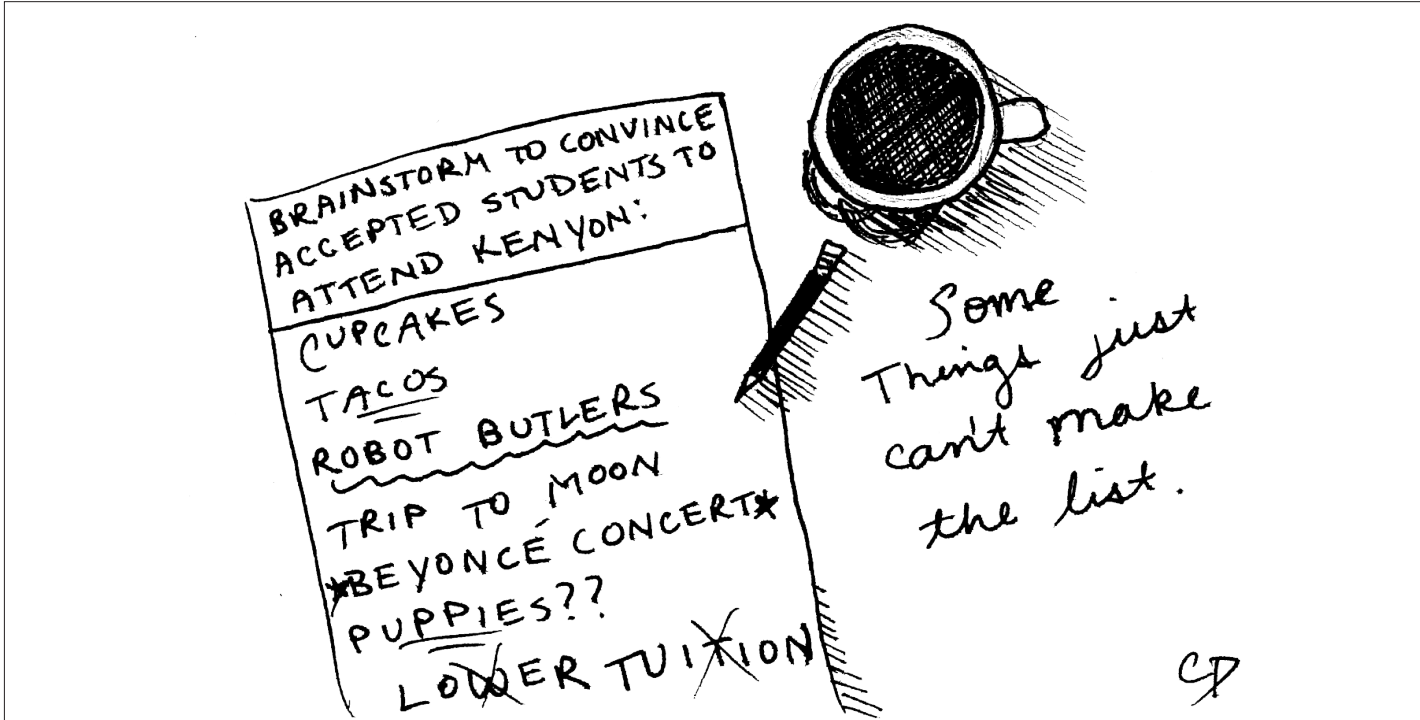 BRAINSTORM TO CONVINCE
ACCEPTED STUDENTS TO
ATTEND KENYON:
CUPCAKES
TACOS
ROBOT BUTLERS
TRIP TO MOON
*BEYONCÉ CONCERT*
PUPPIES??
LOWER TUITION
Some
Things just
can't make
the list.
CD